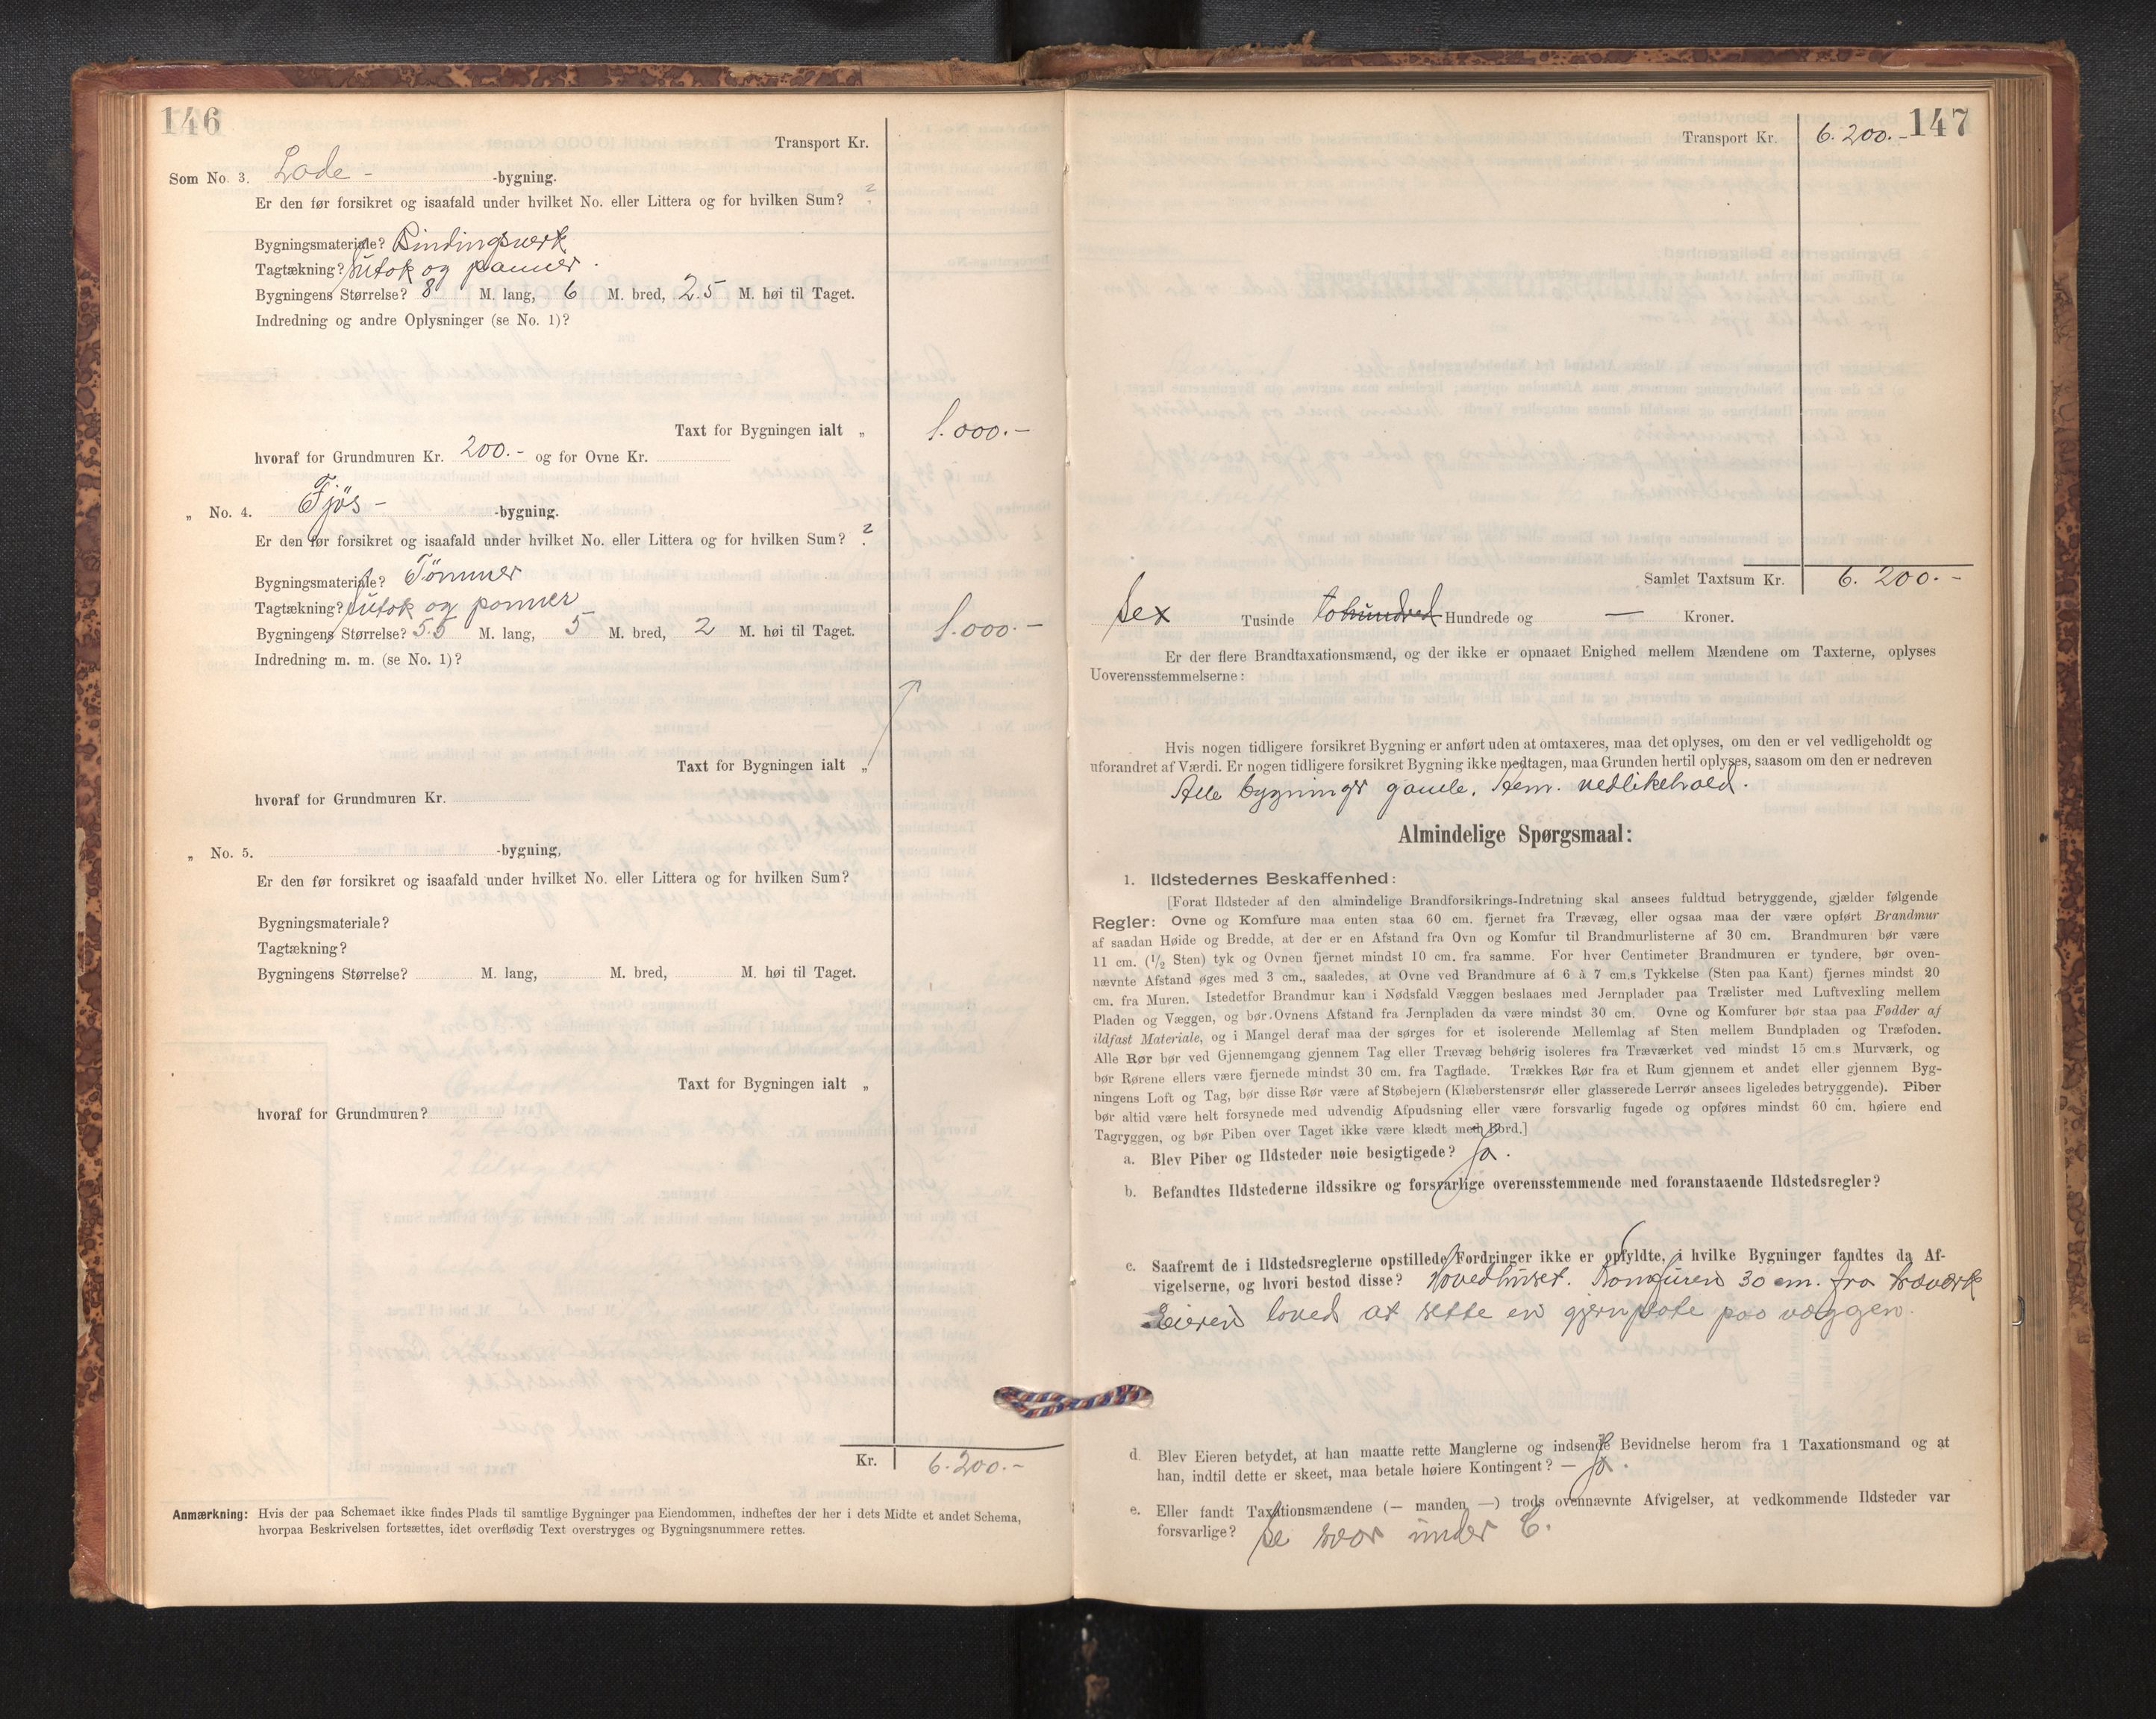 146
Transport Kr.
Som No. 3. Løde - -bygning.
Er den før forsikret og isaafald under hvilket No. eller Littera og for hvilken Sum? ?
Bygningsmateriale? Bindingsverk
Tagtækning? Sutak og panner.
Bygningens Størrelse? 8 M. lang, 6 M. bred, 2.5 M. høi til Taget.
Indredning og andre Oplysninger (se No. 1)?
Taxt for Bygningen ialt „ 1.000.-
hvoraf for Grundmuren Kr. 200.- og for Ovne Kr.
„ No. 4. Fjøs - -bygning.
Er den før forsikret og isaafald under hvilket No. eller Littera og for hvilken Sum? ?
Bygningsmateriale? Tømmer
Tagtækning? Sutak og panner
Bygningens Størrelse? 5.5 M. lang, 5 M. bred, 2 M. høi til Taget. 1.000.-
Indredning m. m. (se No. 1)?
Taxt for Bygningen ialt „
hvoraf for Grundmuren Kr.
„ No. 5. -bygning,
Er den før forsikret og isaafald under hvilket No. eller Littera og for hvilken Sum?
Bygningsmateriale?
Tagtækning?
Bygningens Størrelse? M. lang, M. bred, M. høi til Taget.
Taxt for Bygningen ialt „
hvoraf for Grundmuren?
Kr. 6.200.-
Anmærkning: Hvis der paa Schemaet ikke findes Plads til samtlige Bygninger paa Eiendommen, indheftes der her i dets Midte et andet Schema,
hvorpaa Beskrivelsen fortsættes, idet overflødig Text overstryges og Bygningsnummere rettes.
147
Transport Kr. 6.200.-
Samlet Taxtsum Kr. 6.200.-
Sex Tusinde tohundred Hundrede og — Kroner.
Er der flere Brandtaxationsmænd, og der ikke er opnaaet Enighed mellem Mændene om Taxterne, oplyses
Uoverensstemmelserne:
Hvis nogen tidligere forsikret Bygning er anført uden at omtaxeres, maa det oplyses, om den er vel vedligeholdt og
uforandret af Værdi. Er nogen tidligere forsikret Bygning ikke medtagen, maa Grunden hertil oplyses, saasom om den er nedreven
Alle bygninger gamle. Alm. vedlikehold.
Almindelige Spørgsmaal:
1. Ildstedernes Beskaffenhed:
[Forat Ildsteder af den almindelige Brandforsikrings-Indretning skal ansees fuldtud betryggende, gjælder følgende
Regler: Ovne og Komfure maa enten staa 60 cm. fjernet fra Trævæg, eller ogsaa maa der være opført Brandmur
af saadan Høide og Bredde, at der er en Afstand fra Ovn og Komfur til Brandmurlisterne af 30 cm. Brandmuren bør være
11 cm. (1/2 Sten) tyk og Ovnen fjernet mindst 10 cm. fra samme. For hver Centimeter Brandmuren er tyndere, bør oven-
nævnte Afstand øges med 3 cm., saaledes, at Ovne ved Brandmure af 6 à 7 cm.s Tykkelse (Sten paa Kant) fjernes mindst 20
cm. fra Muren. Istedetfor Brandmur kan i Nødsfald Væggen beslaaes med Jernplader paa Trælister med Luftvexling mellem
Pladen og Væggen, og bør Ovnens Afstand fra Jernpladen da være mindst 30 cm. Ovne og Komfurer bør staa paa Fødder af
ildfast Materiale, og i Mangel deraf maa der sørges for et isolerende Mellemlag af Sten mellem Bundpladen og Træfoden.
Alle Rør bør ved Gjennemgang gjennem Tag eller Trævæg behørig isoleres fra Træværket ved mindst 15 cm.s Murværk, og
bør Rørene ellers være fjernede mindst 30 cm. fra Tagflade. Trækkes Rør fra et Rum gjennem et andet eller gjennem Byg-
ningens Loft og Tag, bør disse Rør være af Støbejern (Klæberstensrør eller glasserede Lerrør ansees ligeledes betryggende). Piber
bør altid være helt forsynede med udvendig Afpudsning eller være forsvarlig fugede og opføres mindst 60 cm. høiere end
Tagryggen, og bør Piben over Taget ikke være klædt meth Bord.]
a. Blev Piber og Ildsteder nøie besigtigede? Ja.
b. Befandtes Ildstederne ildssikre og forsvarlige overensstemmende med foranstaaende Ildstedsregler?
c. Saafremt de i Ildstedsreglerne opstillede Fordringer ikke er opfyldte, i hvilke Bygninger fandtes da Af-
vigelserne, og hvori bestod disse? Hovedhuset. Komfuren 30 cm. fra træverk
Eieren loved at sette en gjernplate paa væggen.
d. Blev Eieren betydet, at han maatte rette Manglerne og indsende Bevidnelse herom fra 1 Taxationsmand og at
han, indtil dette er skeet, maa betale høiere Kontingent? — Ja.
e. Eller fandt Taxationsmændene (— manden —) trods ovennævnte Afvigelser, at vedkommende Ildsteder var
forsvarlige? Se svar under C.